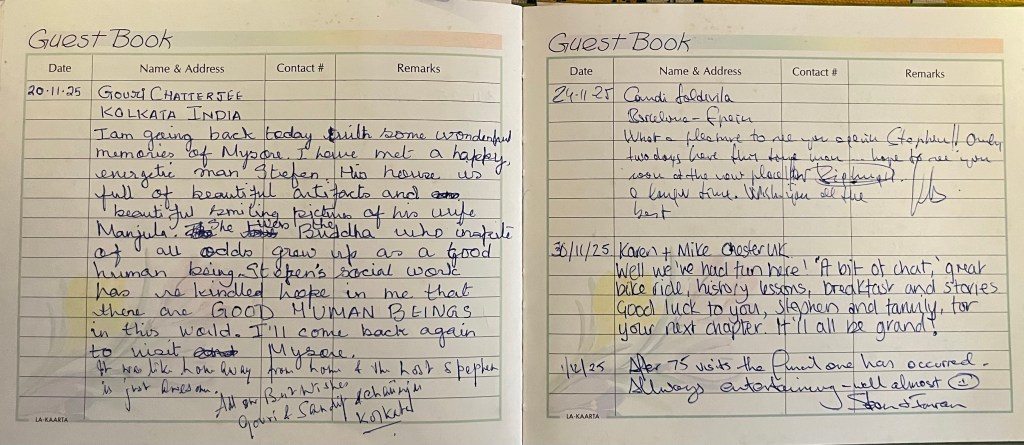 Guest Book
Date Name & Address Contact # Remarks
20.11.25 Gouri Chatterjee
Kolkata India
I am going back today with some wonderful
memories of Mysore. I have met a happy,
energetic man Stefen. His house is
full of beautiful artifacts and
beautiful smiling pictures of his wife
Manjula. She was the Buddha who inspite
of all odds grew up as a good
human being. Stepen's social work
has rekindled hope in me that
there are GOOD HUMAN BEINGS
in this world. I'll come back again
to visit Mysore.
It was like home away from home & the host Stephen
is just awesome.
All our Best Wishes
Gouri & Sandip
Kolkata
LA-KAARTA
Guest Book
Date Name & Address Contact # Remarks
24.11.25 Candi
Barcelona - Spain
What a pleasure to see you again Stephen!! Only
two days here this time man hope to see you
soon at the new place for
a longer time. Wish you all the
best
30/11/25 Karen + Mike Chester UK
Well we've had fun here! "A bit of chat," great
bike ride, history lessons, breakfast and stories
Good luck to you, Stephen and family, for
your next chapter. It'll all be grand!
1/12/25 After 75 visits the final one has occurred.
Always entertaining - well almost
LA-KAARTA